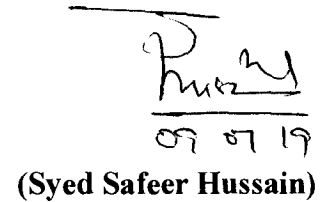 09 07 19
(Syed Safeer Hussain)